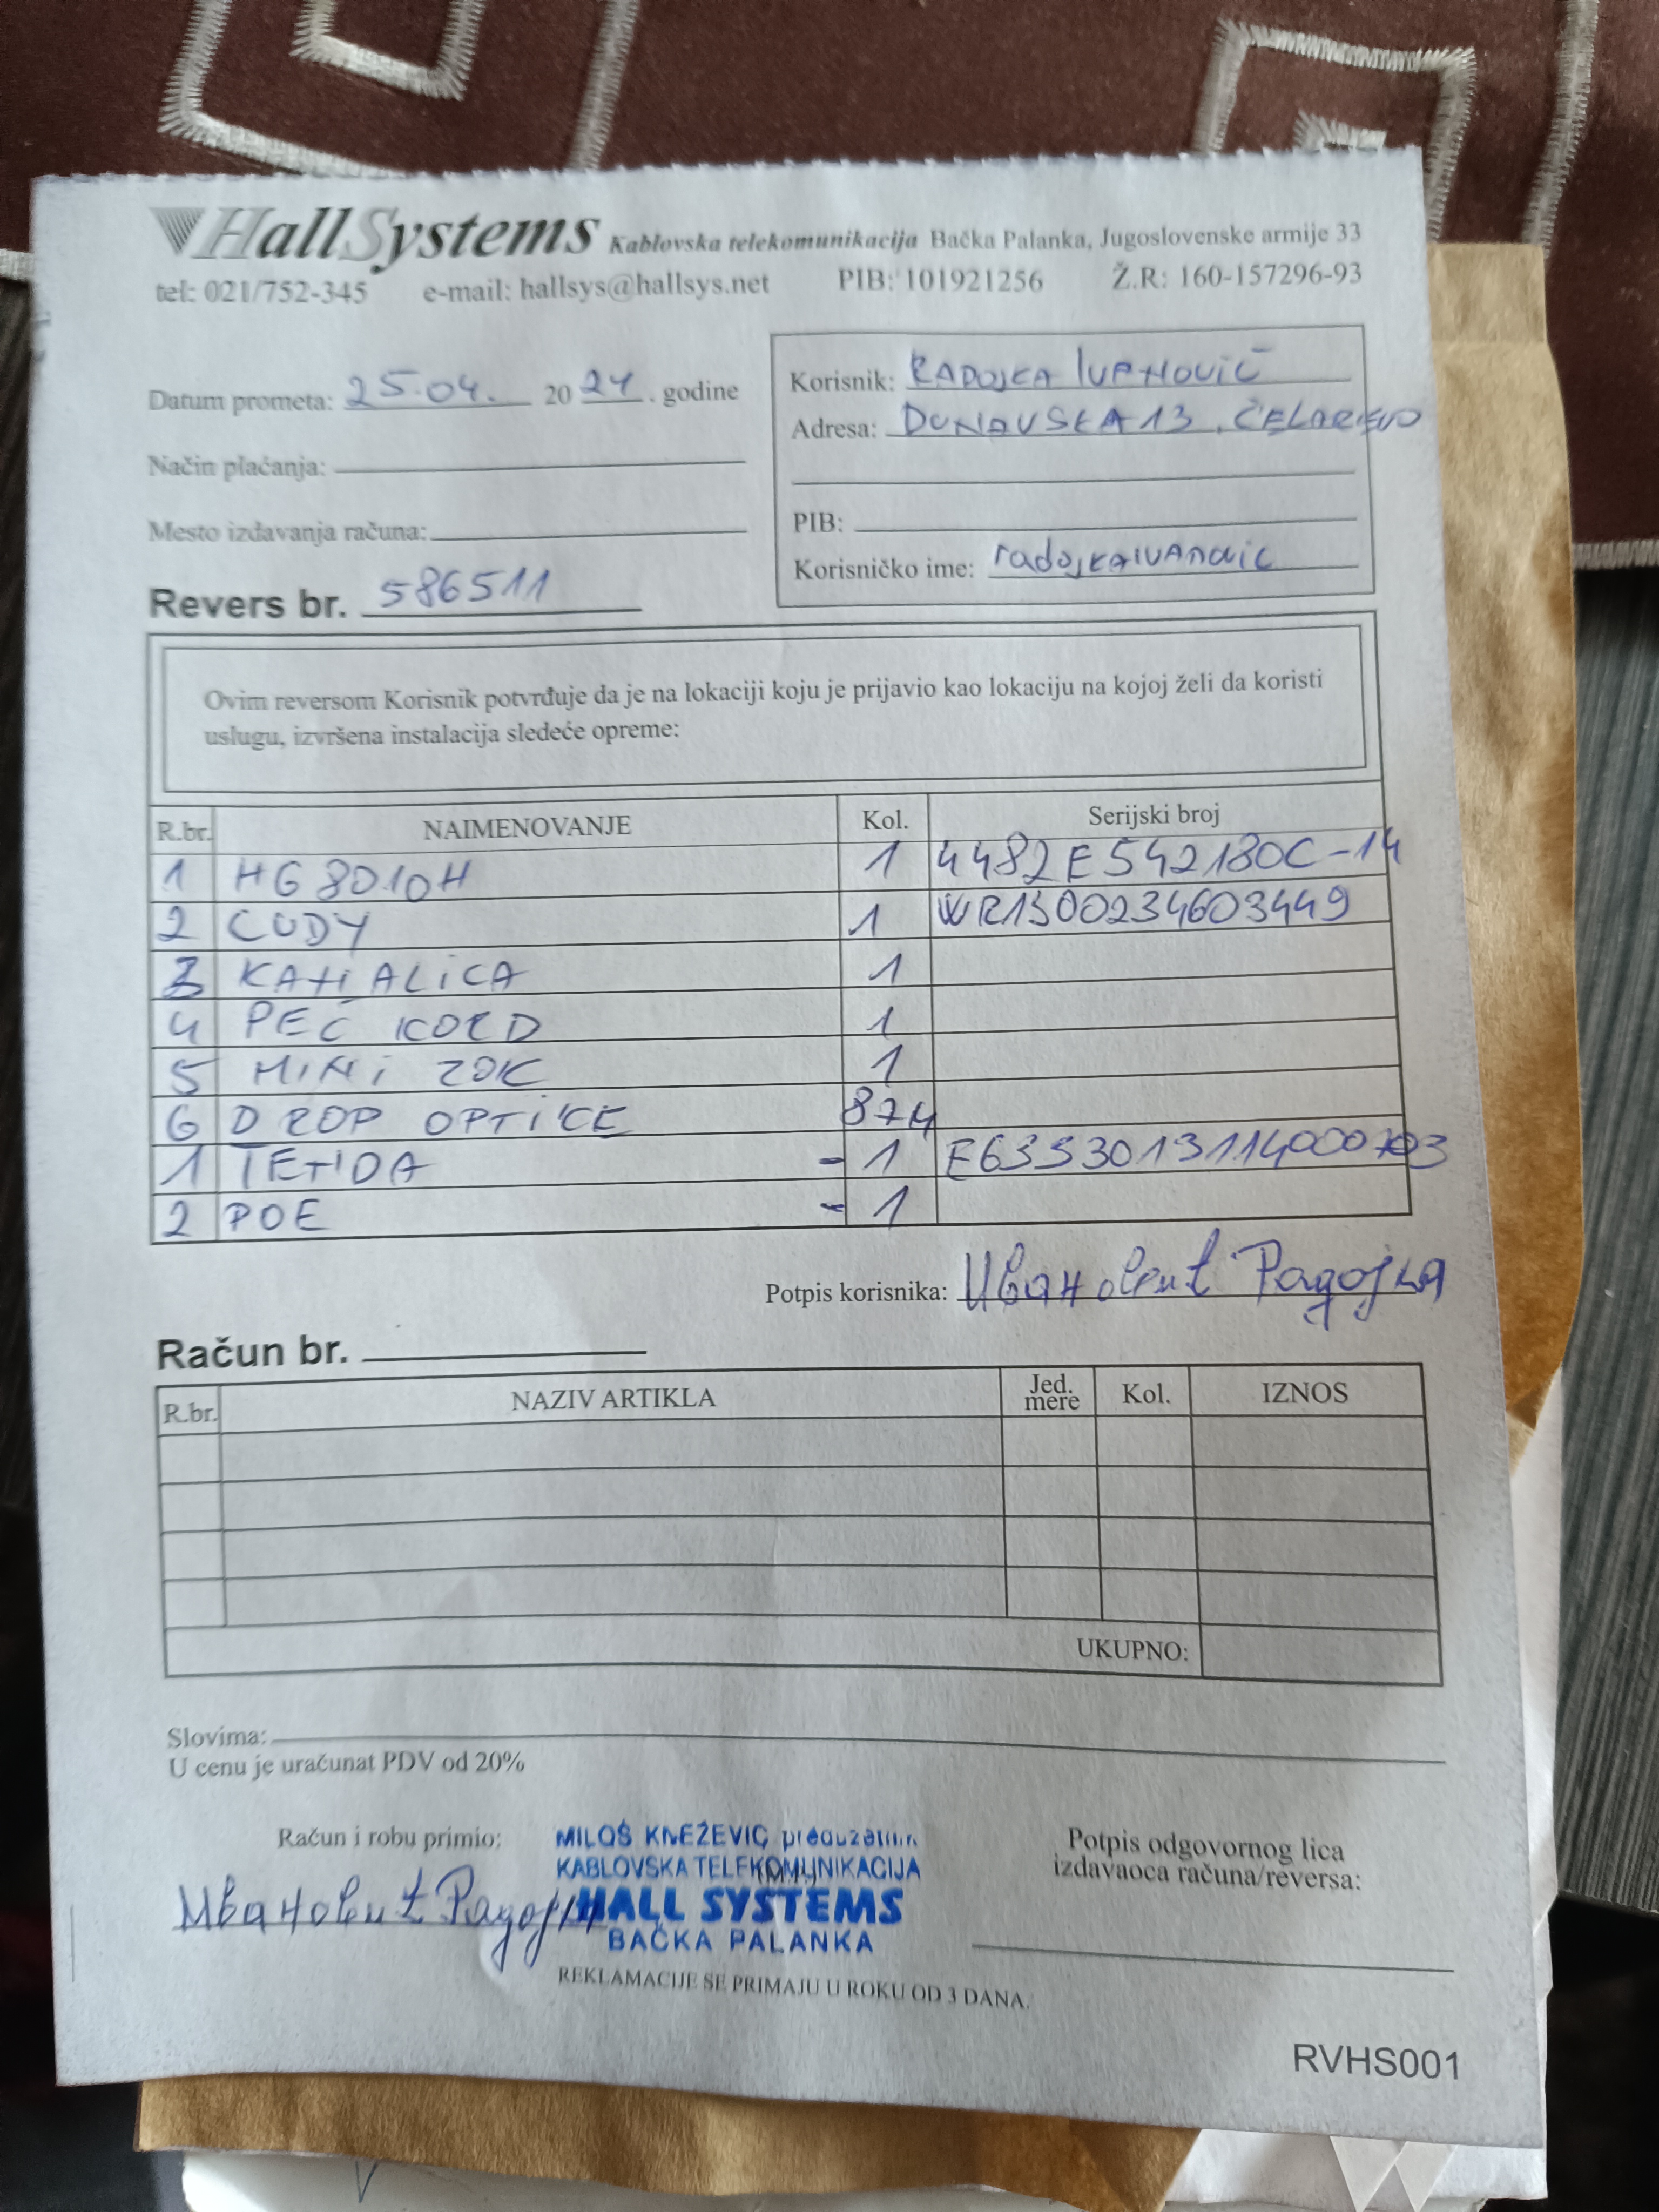 HallSystems Kablovska telekomunikacija Bačka Palanka, Jugoslovenske armije 33
tel: 021/752-345 e-mail: hallsys@hallsys.net PIB: 101921256 Ž.R: 160-157296-93
Datum prometa: 25.04. 2024. godine
Način plaćanja:
Mesto izdavanja računa:
Revers br. 586511
Korisnik: RADOJKA IVANOVIĆ
Adresa: DUNAVSKA 13, ČELAREVO
PIB:
Korisničko ime: radojkaIVANOVIC
Ovim reversom Korisnik potvrđuje da je na lokaciji koju je prijavio kao lokaciju na kojoj želi da koristi
uslugu, izvršena instalacija sledeće opreme:
R.br. NAIMENOVANJE Kol. Serijski broj
1 HG8010H 1 4482E542180C-14
2 CUDY 1 WR1300234603449
3 KANALICA 1
4 PEČ KORD 1
5 MINI ZOK 1
6 DROP OPTIKE 87M
1 TENDA -1 E6353013114000703
2 POE -1
Potpis korisnika: Ивановић Радојка
Račun br.
R.br. NAZIV ARTIKLA Jed. mere Kol. IZNOS
UKUPNO:
Slovima:
U cenu je uračunat PDV od 20%
Račun i robu primio:
Ивановић Радојка
MILOŠ KNEŽEVIĆ preduzetnik
KABLOVSKA TELEKOMUNIKACIJA
HALL SYSTEMS
BAČKA PALANKA
Potpis odgovornog lica
izdavaoca računa/reversa:
REKLAMACIJE SE PRIMAJU U ROKU OD 3 DANA.
RVHS001